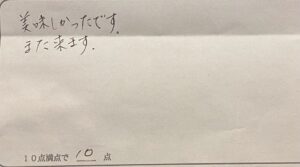 美味しかったです。
また来ます.
10点満点で 10 点